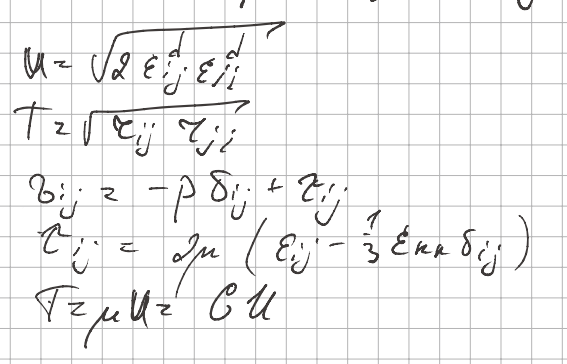 u = √(2 ε^d_ij ε^d_ji)
T = √(τ_ij τ_ji)
σ_ij = -p δ_ij + τ_ij
τ_ij = 2μ (ε_ij - 1/3 ε_kk δ_ij)
T = μ u = G u